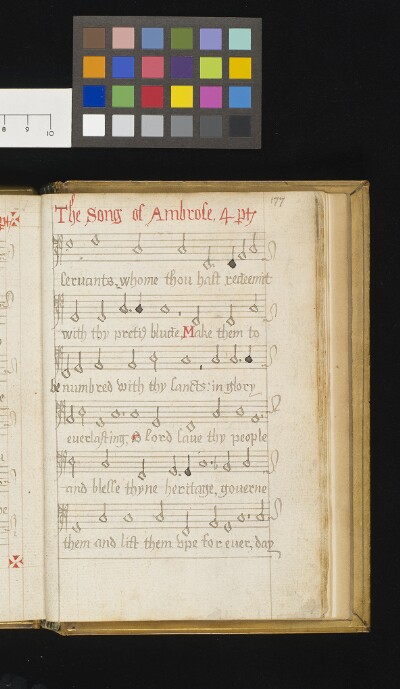 177
The Song of Ambrose, 4 pt
servants, whome thou hast redeemit
with thy pretiꝰ blude, Make them to
be numbred with thy sancts: in glory
everlasting, O lord saue thy people
and blesse thyne heritage, governe
them and lift them vpe for ever, day
8 9 10